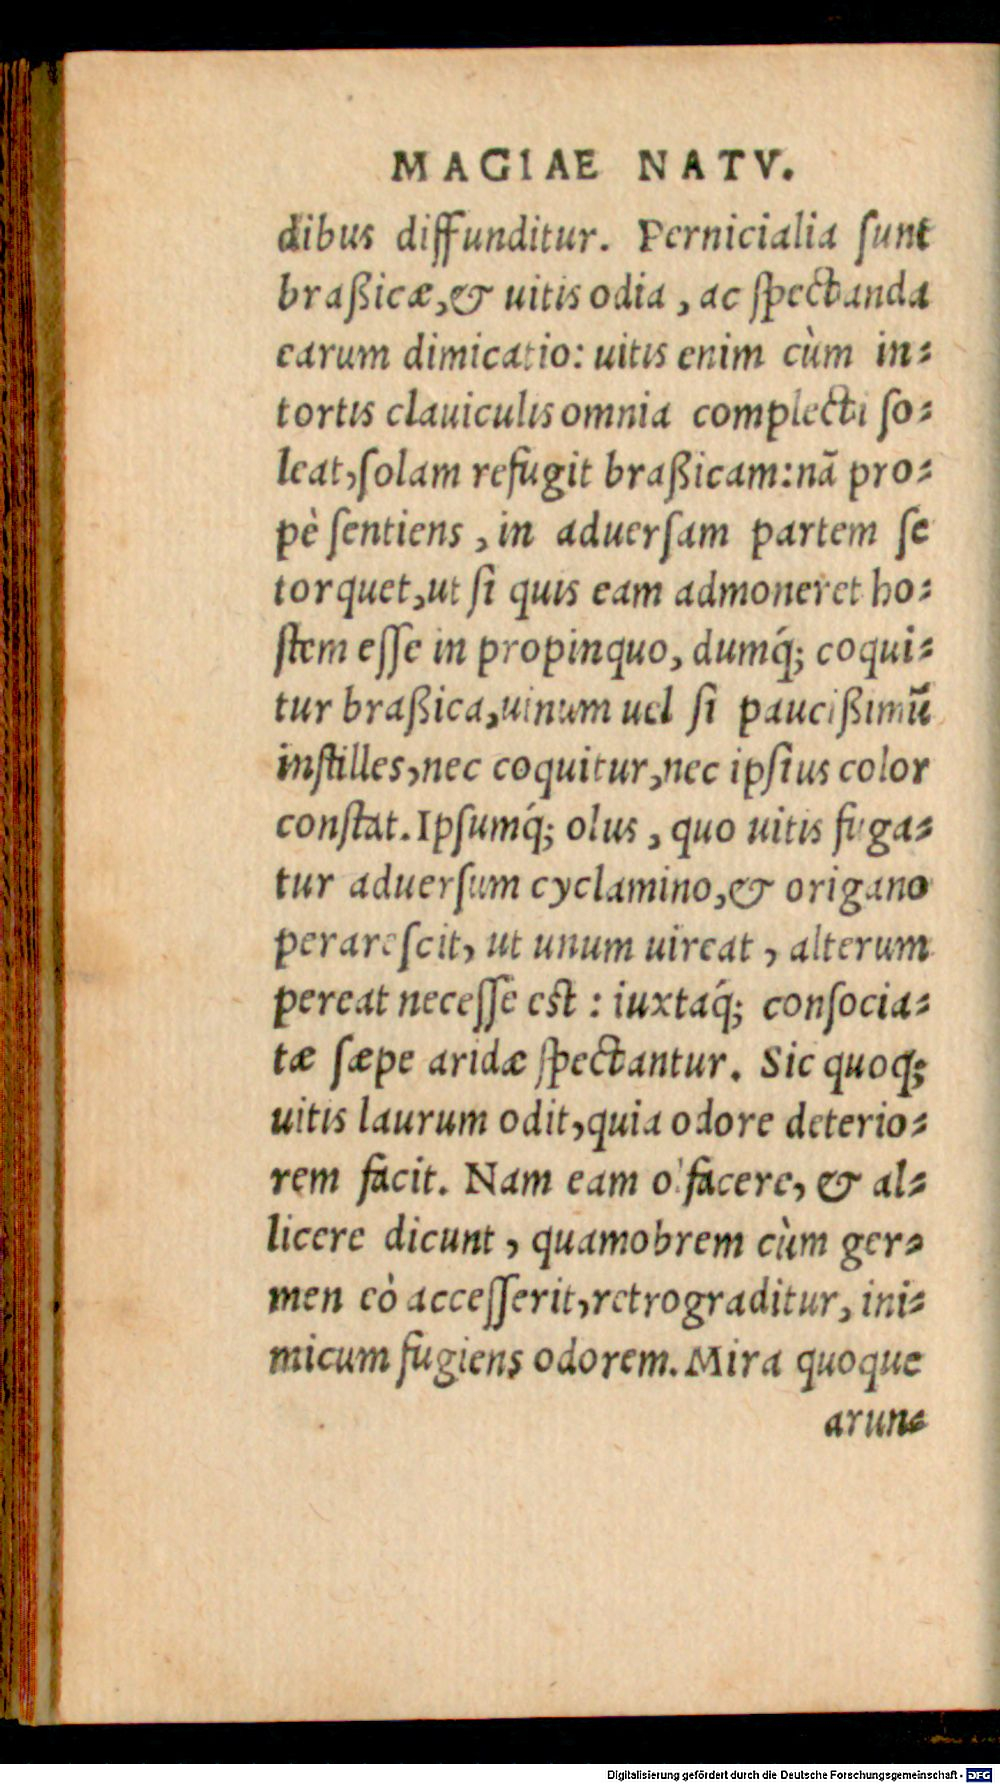 MAGIAE NATV.
dibus diffunditur. Pernicialia ſunt
braßicæ,& uitis odia, ac ſpectanda
earum dimicatio: uitis enim cùm in-
tortis clauiculis omnia complecti ſo-
leat,ſolam refugit braßicam:nā pro-
pè ſentiens, in aduerſam partem ſe
torquet,ut ſi quis eam admoneret ho-
ſtem eſſe in propinquo, dumq́; coqui-
tur braßica,uinum uel ſi paucißimū
inſtilles,nec coquitur,nec ipſius color
conſtat. Ipſumq́; olus, quo uitis fuga-
tur aduerſum cyclamino,& origano
perareſcit, ut unum uireat, alterum
pereat neceſſe eſt: iuxtaq́; conſocia-
tæ ſæpe aridæ ſpectantur. Sic quoq;
uitis laurum odit,quia odore deterio-
rem facit. Nam eam olfacere, & al-
licere dicunt, quamobrem cùm ger-
men eò acceſſerit,retrograditur, ini-
micum fugiens odorem. Mira quoque
arun-
Digitalisierung gefördert durch die Deutsche Forschungsgemeinschaft - DFG